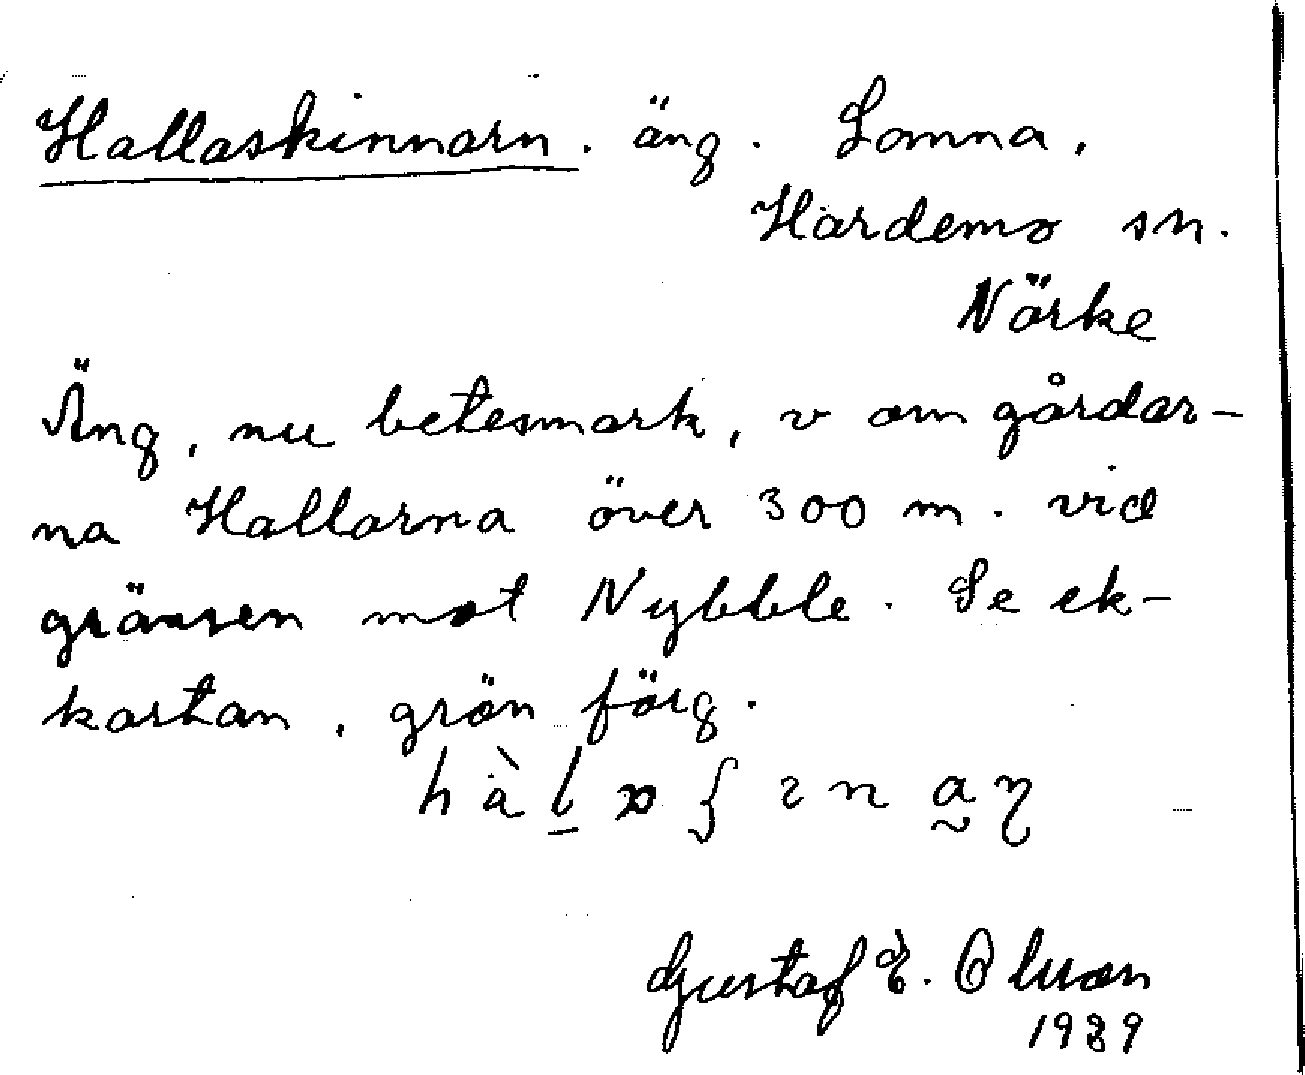 Hallaskinnarn. äng. Lanna,
Hardemo sn.
Närke
Äng, nu betesmark, v om gårdar-
na Hallarna över 300 m. vid
gränsen mot Nybble. Se ek-
kartan, grön färg.
Gustaf E. Olsson
1989